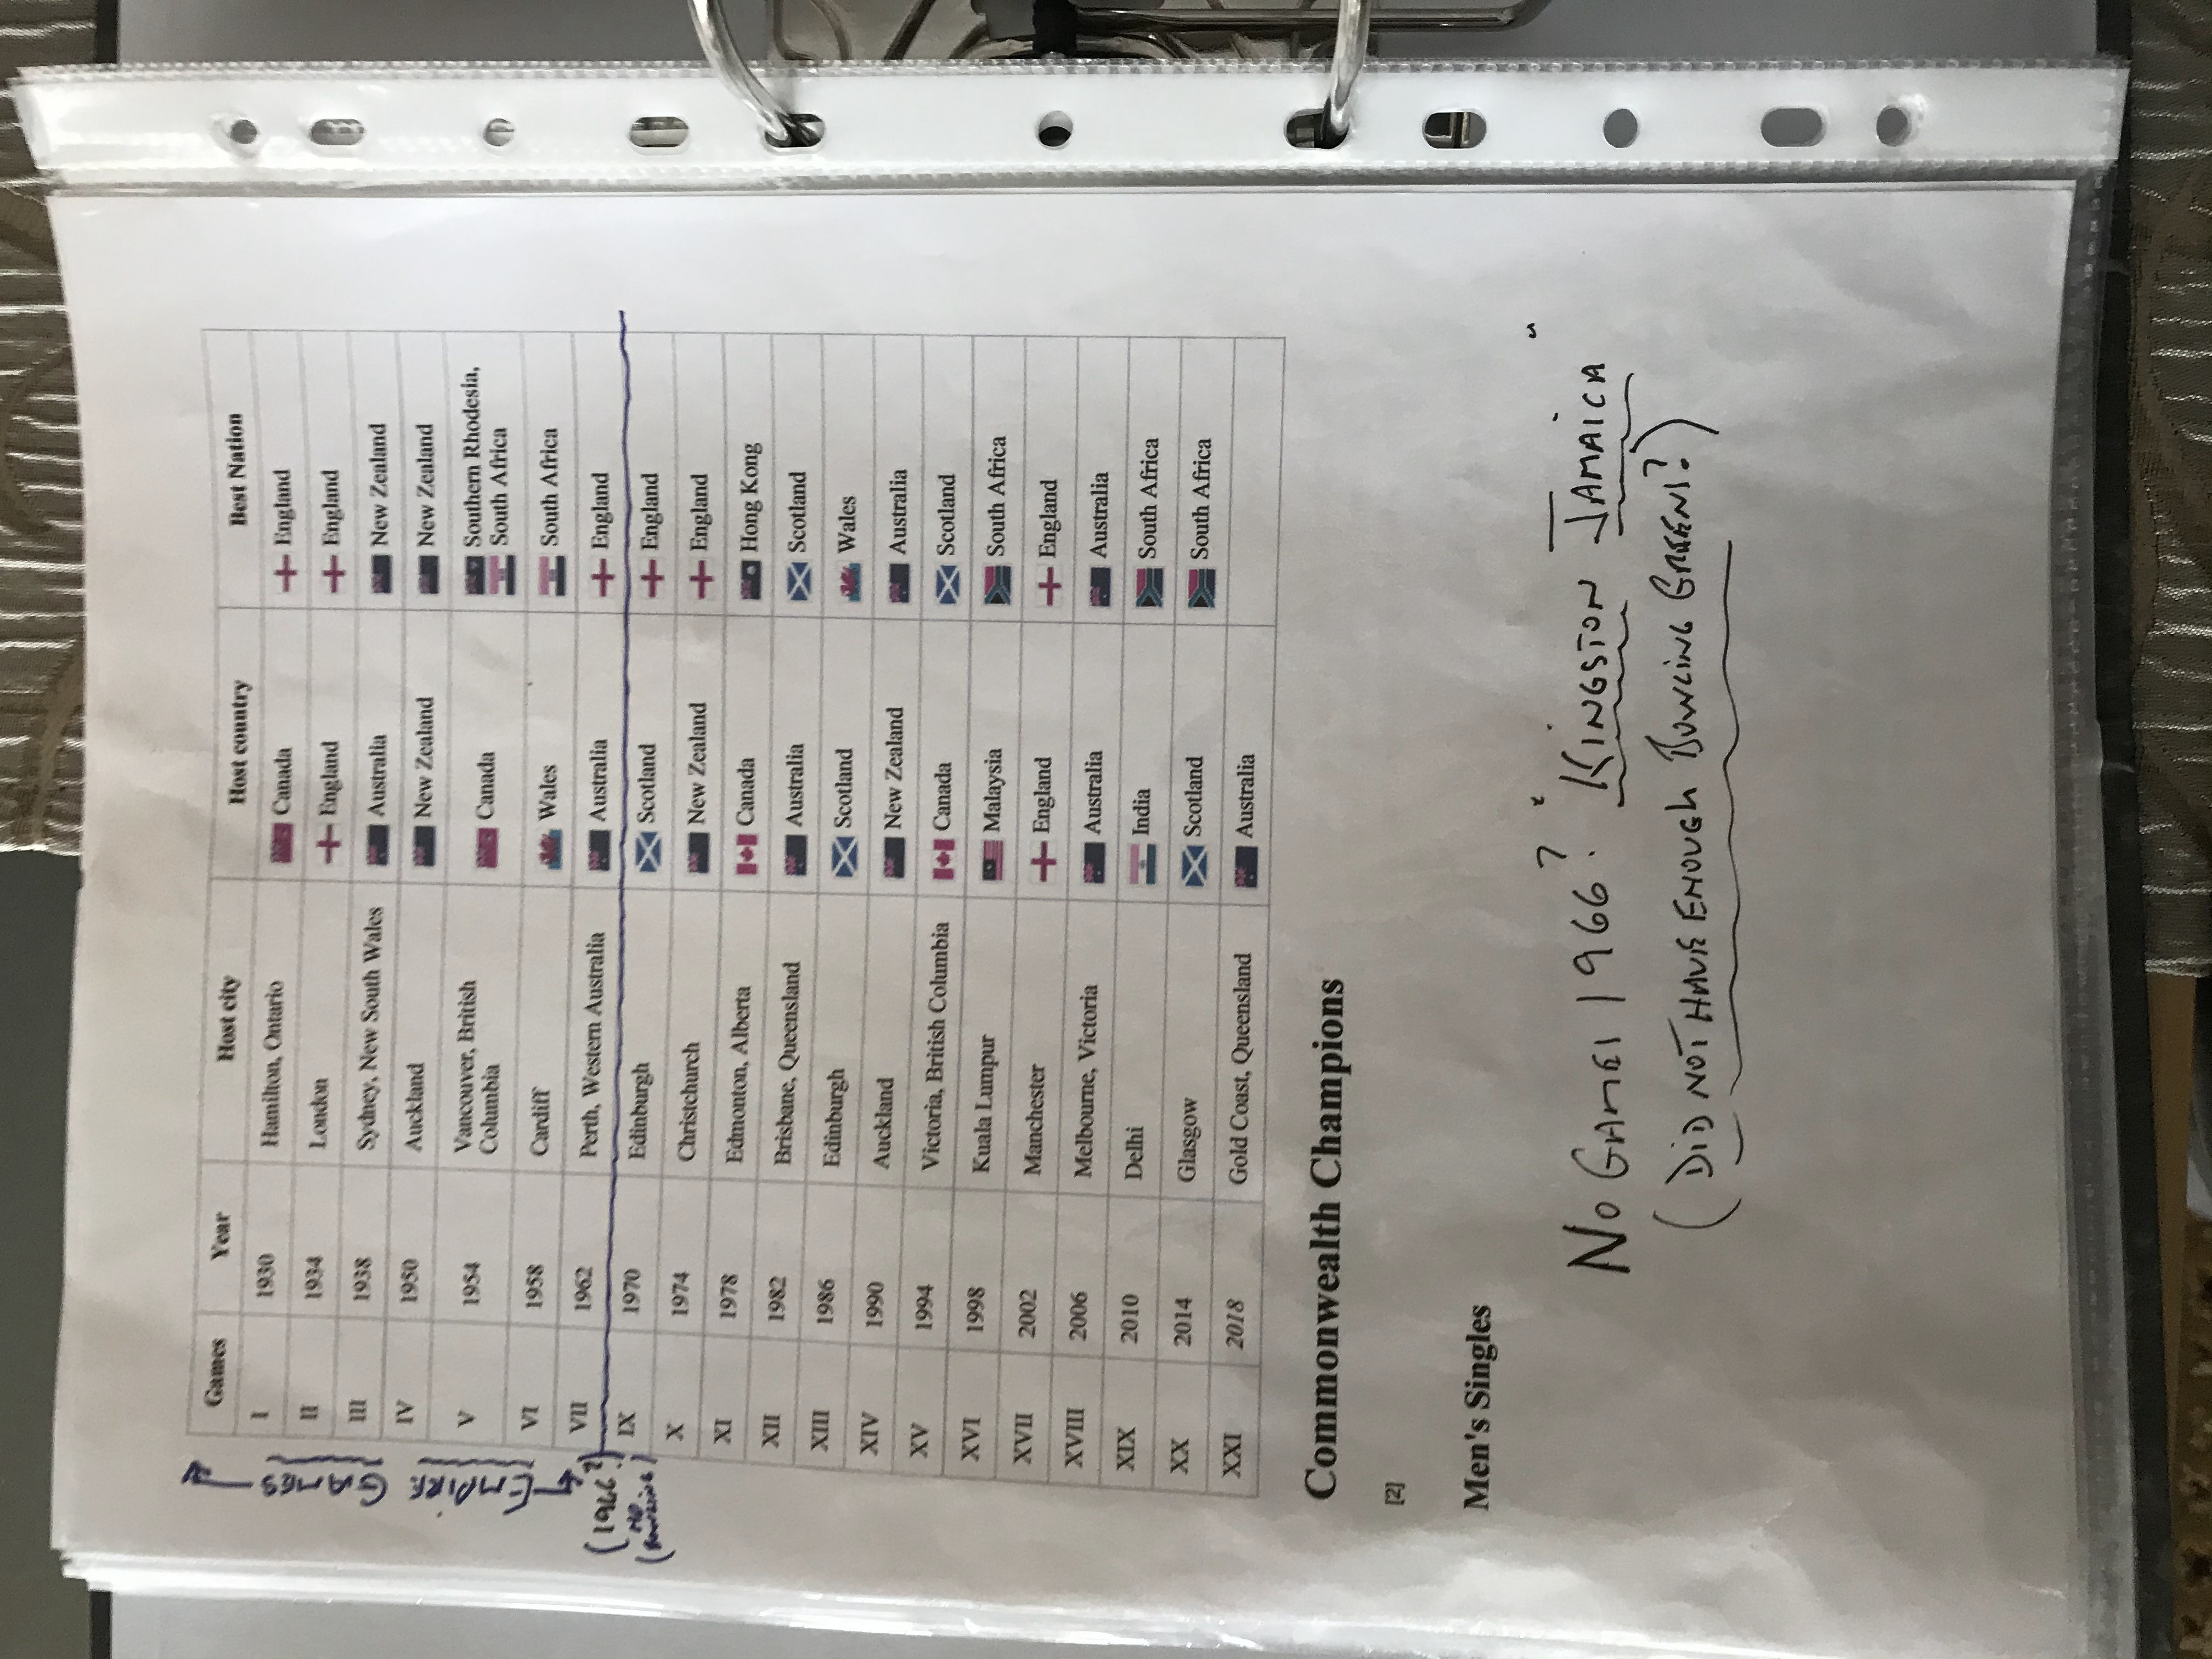 Games Year Host city Host country Best Nation
I 1930 Hamilton, Ontario Canada England
II 1934 London England England
III 1938 Sydney, New South Wales Australia New Zealand
IV 1950 Auckland New Zealand New Zealand
V 1954 Vancouver, British Columbia Canada Southern Rhodesia, South Africa
VI 1958 Cardiff Wales South Africa
VII 1962 Perth, Western Australia Australia England
(1966?)
(NO BOWLING)
IX 1970 Edinburgh Scotland England
X 1974 Christchurch New Zealand England
XI 1978 Edmonton, Alberta Canada Hong Kong
XII 1982 Brisbane, Queensland Australia Scotland
XIII 1986 Edinburgh Scotland Wales
XIV 1990 Auckland New Zealand Australia
XV 1994 Victoria, British Columbia Canada Scotland
XVI 1998 Kuala Lumpur Malaysia South Africa
XVII 2002 Manchester England England
XVIII 2006 Melbourne, Victoria Australia Australia
XIX 2010 Delhi India South Africa
XX 2014 Glasgow Scotland South Africa
XXI 2018 Gold Coast, Queensland Australia
EMPIRE
GAMES
Commonwealth Champions
[2]
Men's Singles
NO GAMES 1966? "KINGSTON JAMAICA"
(DID NOT HAVE ENOUGH BOWLING GREENS?)